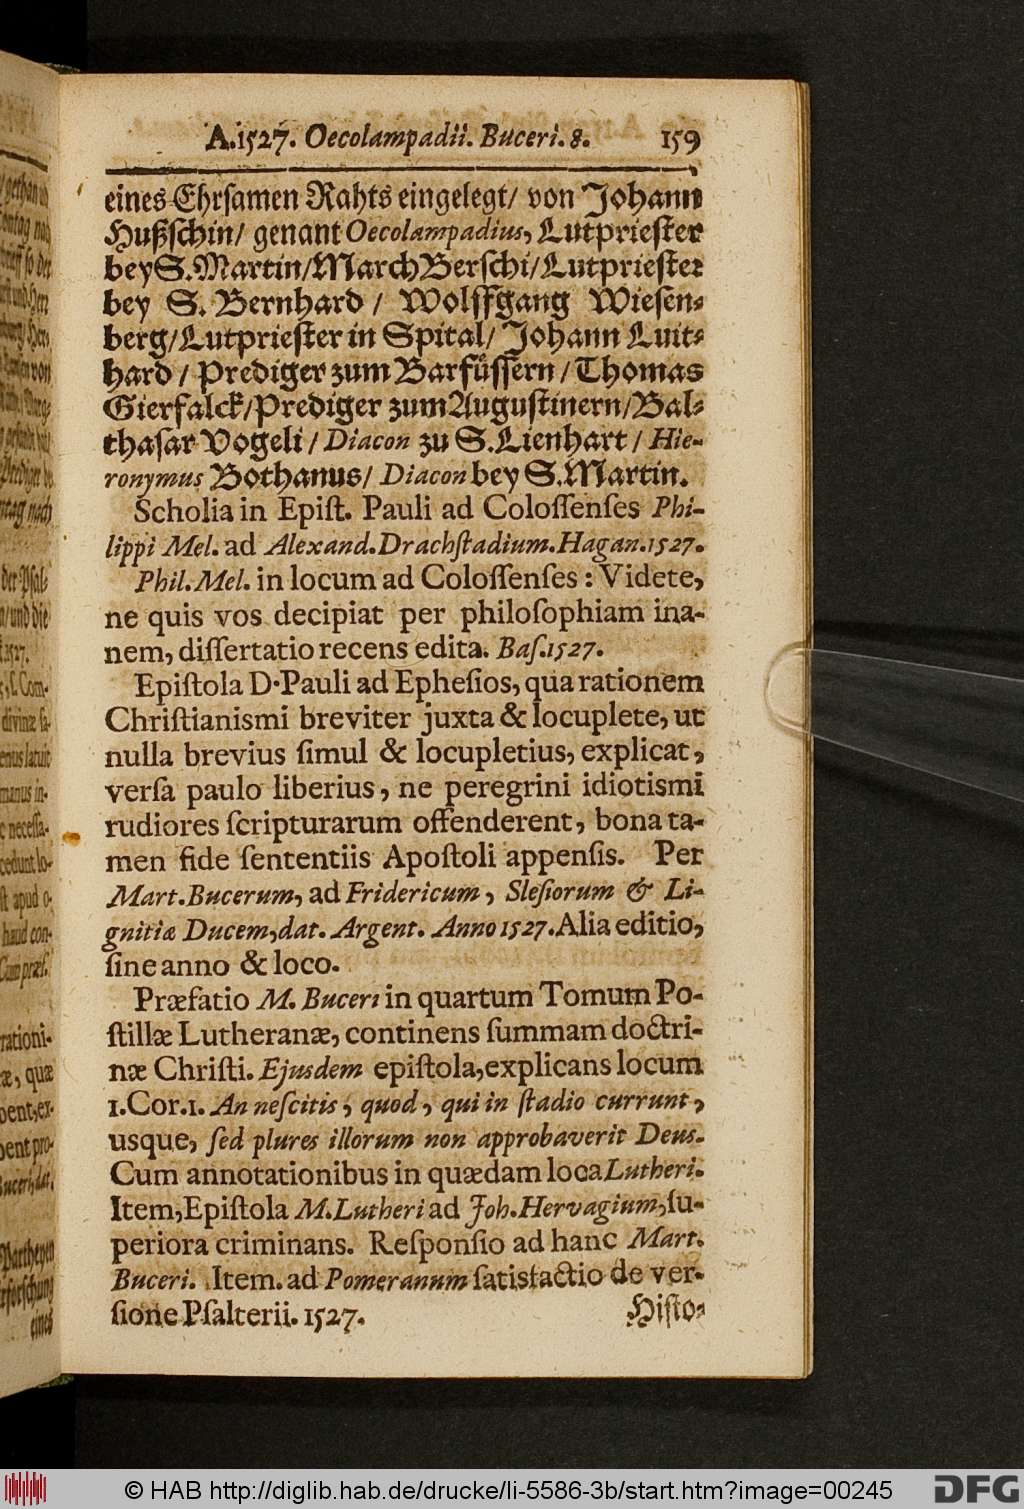 A.1527. Oecolampadii. Buceri. 8. 159
eines Ehrsamen Rahts eingelegt/ von Johann
Hußschin/ genant Oecolampadius, Lutpriester
bey S. Martin/March Berschi/Lutpriester
bey S. Bernhard / Wolffgang Wiesen-
berg/Lutpriester in Spital/ Johann Luit-
hard / Prediger zum Barfüssern / Thomas
Gierfalck/Prediger zum Augustinern/Bal-
thasar Vogeli / Diacon zu S. Lienhart / Hie-
ronymus Bothanus/ Diacon bey S. Martin.
Scholia in Epiſt. Pauli ad Coloſſenſes Phi-
lippi Mel. ad Alexand. Drachſtadium. Hagan. 1527.
Phil. Mel. in locum ad Coloſſenſes : Videte,
ne quis vos decipiat per philoſophiam ina-
nem, diſſertatio recens edita. Baſ. 1527.
Epiſtola D. Pauli ad Epheſios, qua rationem
Chriſtianismi breviter juxta & locuplete, ut
nulla brevius ſimul & locupletius, explicat,
verſa paulo liberius, ne peregrini idiotismi
rudiores ſcripturarum offenderent, bona ta-
men fide ſententiis Apoſtoli appenſis. Per
Mart. Bucerum, ad Fridericum, Sleſiorum & Li-
gnitiæ Ducem, dat. Argent. Anno 1527. Alia editio,
ſine anno & loco.
Præfatio M. Buceri in quartum Tomum Po-
ſtillæ Lutheranæ, continens ſummam doctri-
næ Chriſti. Ejusdem epiſtola, explicans locum
1. Cor. 1. An neſcitis, quod, qui in ſtadio currunt,
usque, ſed plures illorum non approbaverit Deus.
Cum annotationibus in quædam loca Lutheri.
Item, Epiſtola M. Lutheri ad Joh. Hervagium, ſu-
periora criminans. Reſponſio ad hanc Mart.
Buceri. Item. ad Pomeranum ſatisfactio de ver-
ſione Pſalterii. 1527. Hiſto-
© HAB http://diglib.hab.de/drucke/li-5586-3b/start.htm?image=00245
DFG